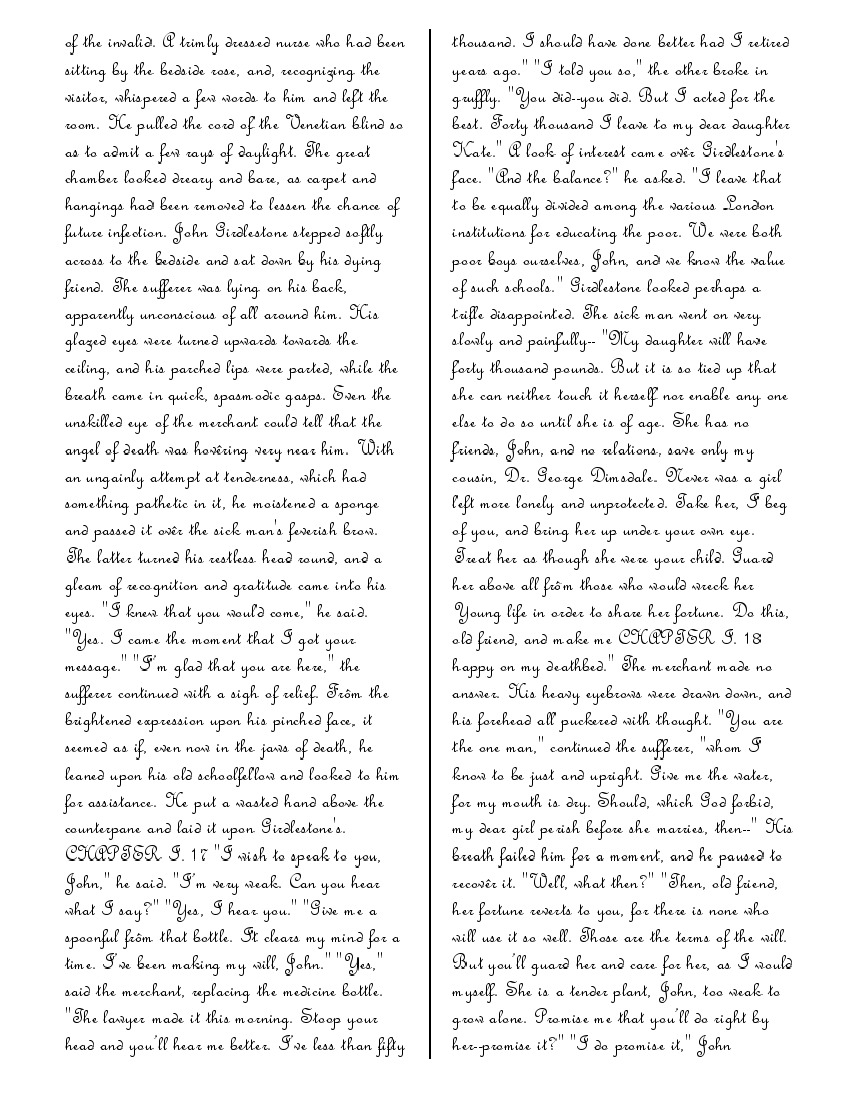 of the invalid. A trimly dressed nurse who had been
sitting by the bedside rose, and, recognizing the
visitor, whispered a few words to him and left the
room. He pulled the cord of the Venetian blind so
as to admit a few rays of daylight. The great
chamber looked dreary and bare, as carpet and
hangings had been removed to lessen the chance of
future infection. John Girdlestone stepped softly
across to the bedside and sat down by his dying
friend. The sufferer was lying on his back,
apparently unconscious of all around him. His
glazed eyes were turned upwards towards the
ceiling, and his parched lips were parted, while the
breath came in quick, spasmodic gasps. Even the
unskilled eye of the merchant could tell that the
angel of death was hovering very near him. With
an ungainly attempt at tenderness, which had
something pathetic in it, he moistened a sponge
and passed it over the sick man's feverish brow.
The latter turned his restless head round, and a
gleam of recognition and gratitude came into his
eyes. "I knew that you would come," he said.
"Yes. I came the moment that I got your
message." "I'm glad that you are here," the
sufferer continued with a sigh of relief. From the
brightened expression upon his pinched face, it
seemed as if, even now in the jaws of death, he
leaned upon his old schoolfellow and looked to him
for assistance. He put a wasted hand above the
counterpane and laid it upon Girdlestone's.
CHAPTER I. 17 "I wish to speak to you,
John," he said. "I'm very weak. Can you hear
what I say?" "Yes, I hear you." "Give me a
spoonful from that bottle. It clears my mind for a
time. I've been making my will, John." "Yes,"
said the merchant, replacing the medicine bottle.
"The lawyer made it this morning. Stoop your
head and you'll hear me better. I've less than fifty
thousand. I should have done better had I retired
years ago." "I told you so," the other broke in
gruffly. "You did--you did. But I acted for the
best. Forty thousand I leave to my dear daughter
Kate." A look of interest came over Girdlestone's
face. "And the balance?" he asked. "I leave that
to be equally divided among the various London
institutions for educating the poor. We were both
poor boys ourselves, John, and we know the value
of such schools." Girdlestone looked perhaps a
trifle disappointed. The sick man went on very
slowly and painfully-- "My daughter will have
forty thousand pounds. But it is so tied up that
she can neither touch it herself nor enable any one
else to do so until she is of age. She has no
friends, John, and no relations, save only my
cousin, Dr. George Dimsdale. Never was a girl
left more lonely and unprotected. Take her, I beg
of you, and bring her up under your own eye.
Treat her as though she were your child. Guard
her above all from those who would wreck her
Young life in order to share her fortune. Do this,
old friend, and make me CHAPTER I. 18
happy on my deathbed." The merchant made no
answer. His heavy eyebrows were drawn down, and
his forehead all puckered with thought. "You are
the one man," continued the sufferer, "whom I
know to be just and upright. Give me the water,
for my mouth is dry. Should, which God forbid,
my dear girl perish before she marries, then--" His
breath failed him for a moment, and he paused to
recover it. "Well, what then?" "Then, old friend,
her fortune reverts to you, for there is none who
will use it so well. Those are the terms of the will.
But you'll guard her and care for her, as I would
myself. She is a tender plant, John, too weak to
grow alone. Promise me that you'll do right by
her--promise it?" "I do promise it," John